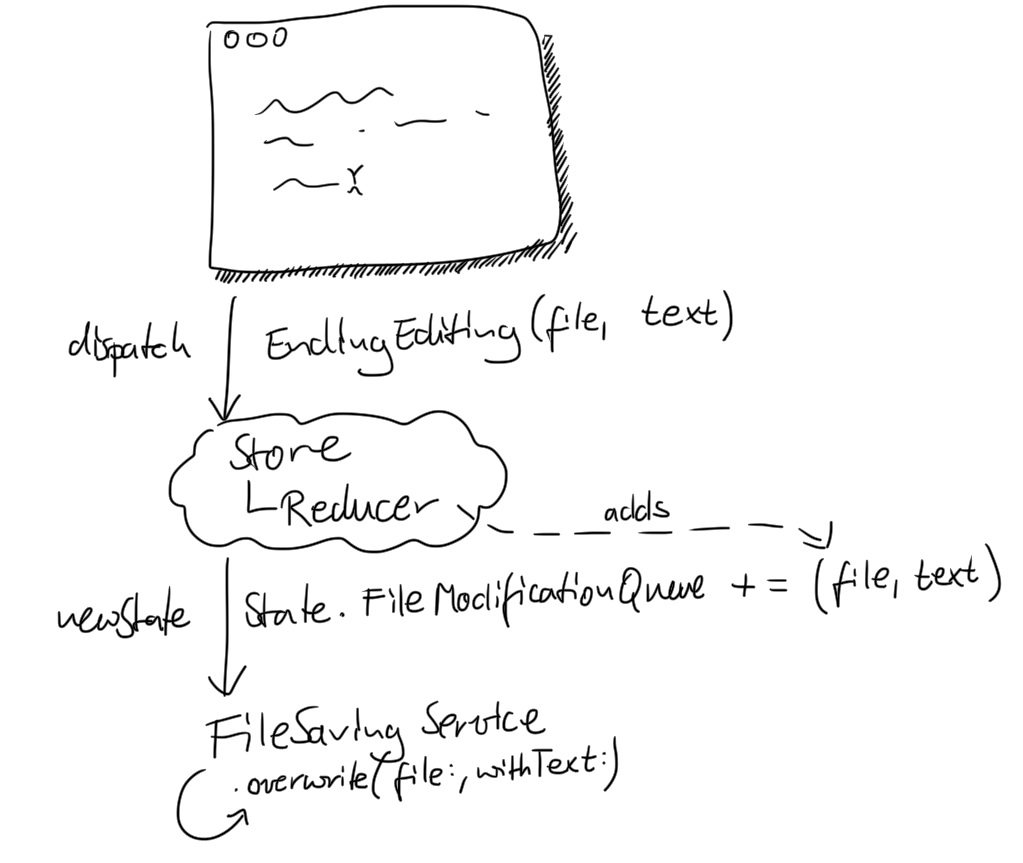 dispatch
EndingEditing(file, text)
Store
Reducer
adds
newState
State.FileModificationQueue += (file, text)
FileSaving Service
.overwrite(file:, withText:)